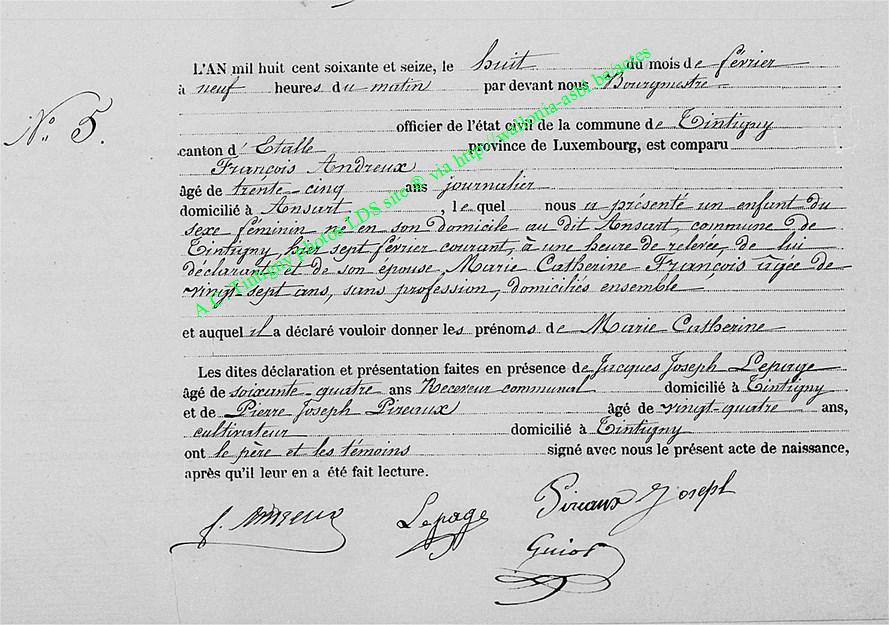 L'AN mil huit cent soixante et seize, le huit du mois de février
à neuf heures du matin par devant nous Bourgmestre
N° 5.
officier de l'état civil de la commune de Tintigny
canton d'Etalle province de Luxembourg, est comparu
François Andreux
âgé de trente-cinq ans journalier
domicilié à Ansart, lequel nous a présenté un enfant du
sexe féminin né en son domicile au dit Ansart, commune de
Tintigny, hier sept février courant, à une heure de relevée, de lui
déclarant et de son épouse Marie Catherine François âgée de
vingt-sept ans, sans profession, domiciliés ensemble
et auquel il a déclaré vouloir donner les prénoms de Marie Catherine
Les dites déclaration et présentation faites en présence de Jacques Joseph Lepage
âgé de soixante-quatre ans Receveur communal domicilié à Tintigny
et de Pierre Joseph Pireaux âgé de vingt-quatre ans,
cultivateur domicilié à Tintigny
ont le père et les témoins signé avec nous le présent acte de naissance,
après qu'il leur en a été fait lecture.
f. Andreux Lepage Pireaux Joseph
Guiot
A.C. Tintigny photos LDS site ® via http://wallonia-asbl.be/actes